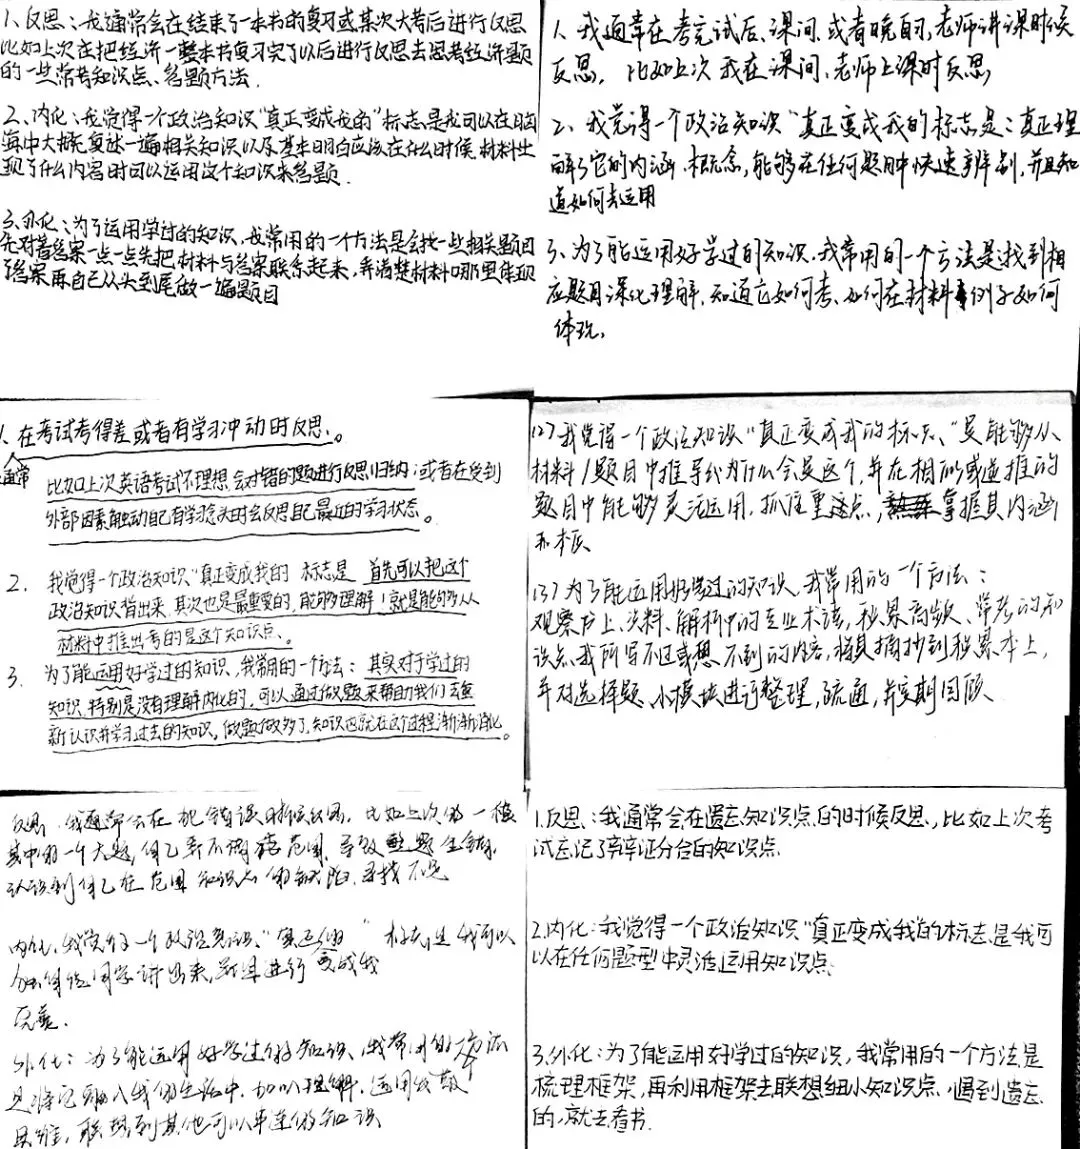 1、反思：我通常会在结束了一本书的复习或某次大考后进行反思
比如上次在把经济一整本书复习完了以后进行反思去思考经济题
的一些常考知识点、答题方法.
2、内化：我觉得一个政治知识“真正变成我的”标志是我可以在脑
海中大概复述一遍相关知识以及基本明白应该在什么时候材料出
现了什么内容时可以运用这个知识来答题.
3、外化：为了运用学过的知识，我常用的一个方法是会找一些相关题目
先对着答案一点一点先把材料与答案联系起来，弄清楚材料哪里体现
了答案再自己从头到尾做一遍题目
1、我通常在考完试后、课间、或者晚自、老师讲课时候
反思，比如上次我在课间、老师上课时反思
2、我觉得一个政治知识“真正变成我的标志是：真正理
解了它的内涵、概念，能够在任何题中快速辨别，并且知
道如何去运用
3、为了能运用好学过的知识，我常用的一个方法是找到相
应题目深化理解，知道它如何考、如何在材料例子如何
体现。
1、在考试考得差或者有学习冲动时反思。
通常
比如上次英语考试不理想会对错的题进行反思归纳；或者在受到
外部因素触动自己有学习念头时会反思自己最近的学习状态。
2. 我觉得一个政治知识“真正变成我的 标志是 首先可以把这个
政治知识背出来，其次也是最重要的，能够理解！就是能够从
材料中推出考的是这个知识点、。
3. 为了能运用好学过的知识，我常用的一个方法：其实对于学过的
知识，特别是没有理解内化的，可以通过做题来帮助我们去重
新认识并学习过去的知识，做题做多了，知识也就在这个过程渐渐消化。
(2)我觉得一个政治知识“真正变成我的标志、”是能够从
材料/题目中推导出为什么会是这个，并在相似或递推的
题目中能够灵活运用，抓住重点，掌握其内涵
(3)为了能运用好学过的知识，我常用的一个方法：
观察书上、资料、解析中的专业术语，积累高频、常考的知
识点，我所写不到或想不到的内容，将其摘抄到积累本上，
并对选择题、小模块进行整理，疏通，并定期回顾
反思：我通常会在犯错误时候反思，比如上次做一模
其中的一个大题，自己弄不清楚范围，导致整题全错，
认识到自己在范围知识点的缺陷，寻找不足
内化：我觉得一个政治知识，“真正 ”标志是我可以
变成我
外化：为了能运用好学过的知识，我常用的方法
是将它融入我的生活中，加以理解，运用发散
思维，联想到其他可以串连的知识
1.反思：我通常会在遗忘知识点的时候反思，比如上次考
试忘记了辩证分合的知识点.
2.内化：我觉得一个政治知识“真正变成我的标志是我可
以在任何题型中灵活运用知识点.
3.外化：为了能运用好学过的知识，我常用的一个方法是
梳理框架，再利用框架去联想细小知识点，遇到遗忘
的，就去看书.